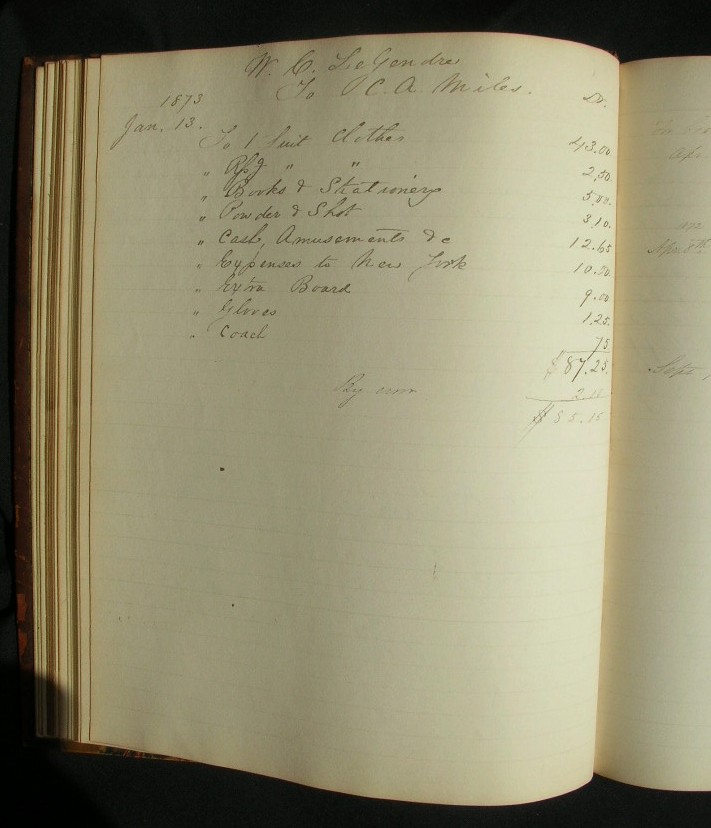 W. C. LeGendre
To C. A. Miles. Dr.
1873
Jan. 13. To 1 Suit Clothes 43.00
" Rp'g " " 2,50.
" Books & Stationery 5,00.
" Powder & Shot 3,10.
" Cash, Amusements &c 12.65
" Expenses to New York 10.00
" Extra Board 9.00
" Gloves 1.25.
" Coach 75
$87.25.
By error 2.10
$85.15
Sept